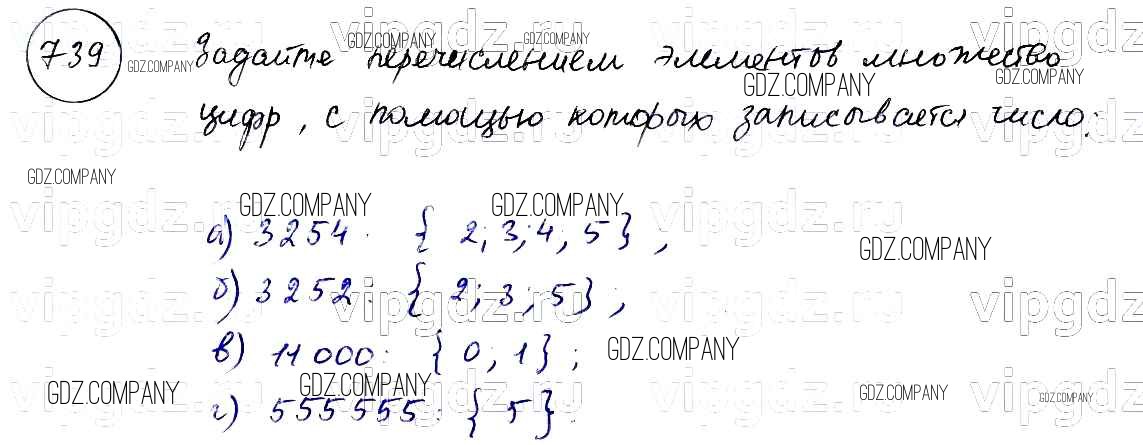 739 Задайте перечислением элементов множество
цифр, с помощью которых записывается число:
а) 3254: { 2; 3; 4; 5 } ,
б) 3252: { 2; 3; 5 } ;
в) 11 000: { 0, 1 } ;
г) 555555: { 5 }.
vipgdz.ru
GDZ.COMPANY